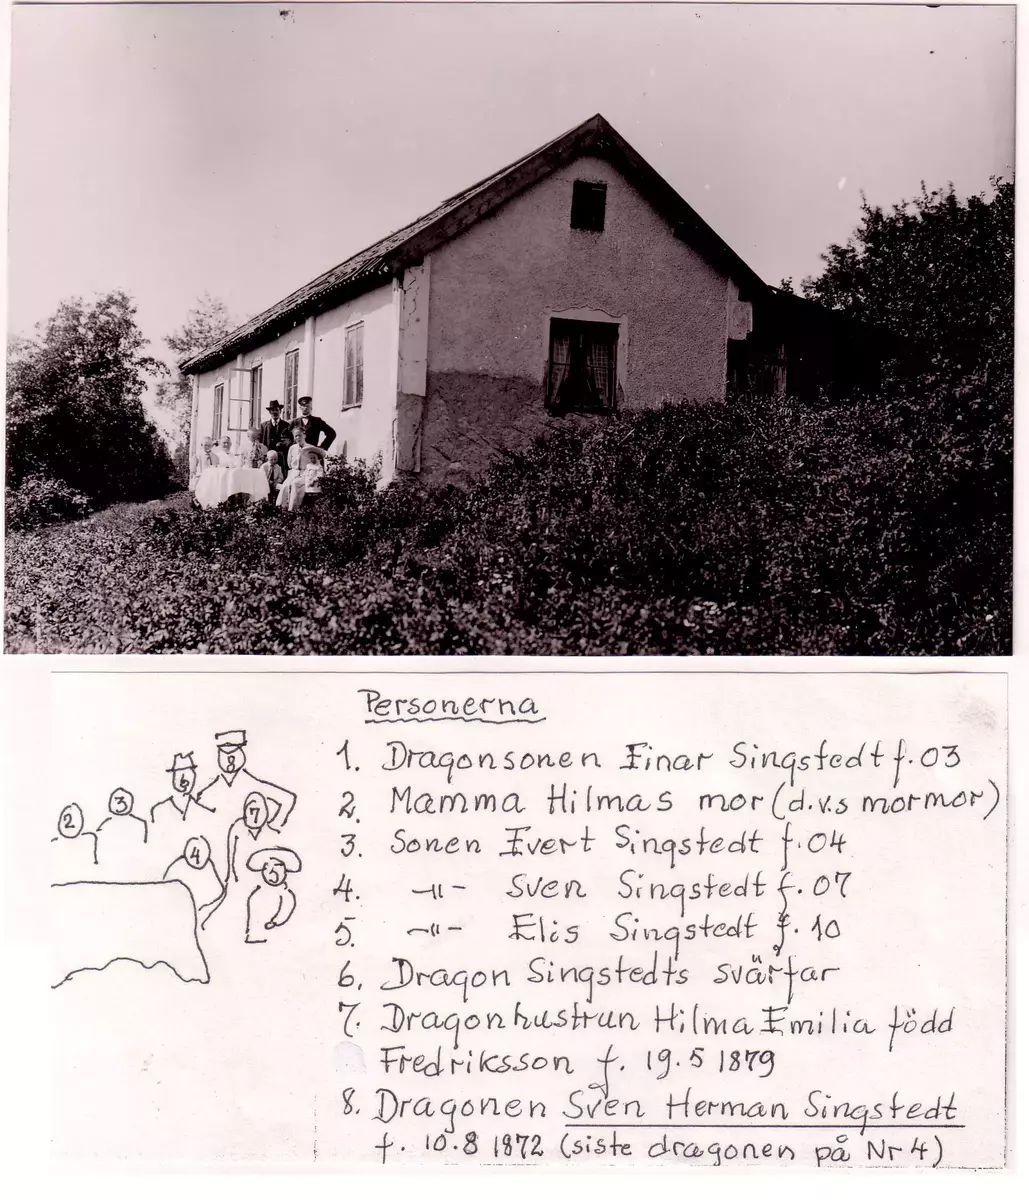 Personerna
1. Dragonsonen Einar Singstedt f. 03
2. Mamma Hilmas mor (d.v.s mormor)
3. Sonen Evert Singstedt f. 04
4. -"- Sven Singstedt f. 07
5. -"- Elis Singstedt f. 10
6. Dragon Singstedts svärfar
7. Dragonhustrun Hilma Emilia född
Fredriksson f. 19.5 1879
8. Dragonen Sven Herman Singstedt
f. 10.8 1872 (siste dragonen på Nr 4)
2
3
6
8
7
4
5